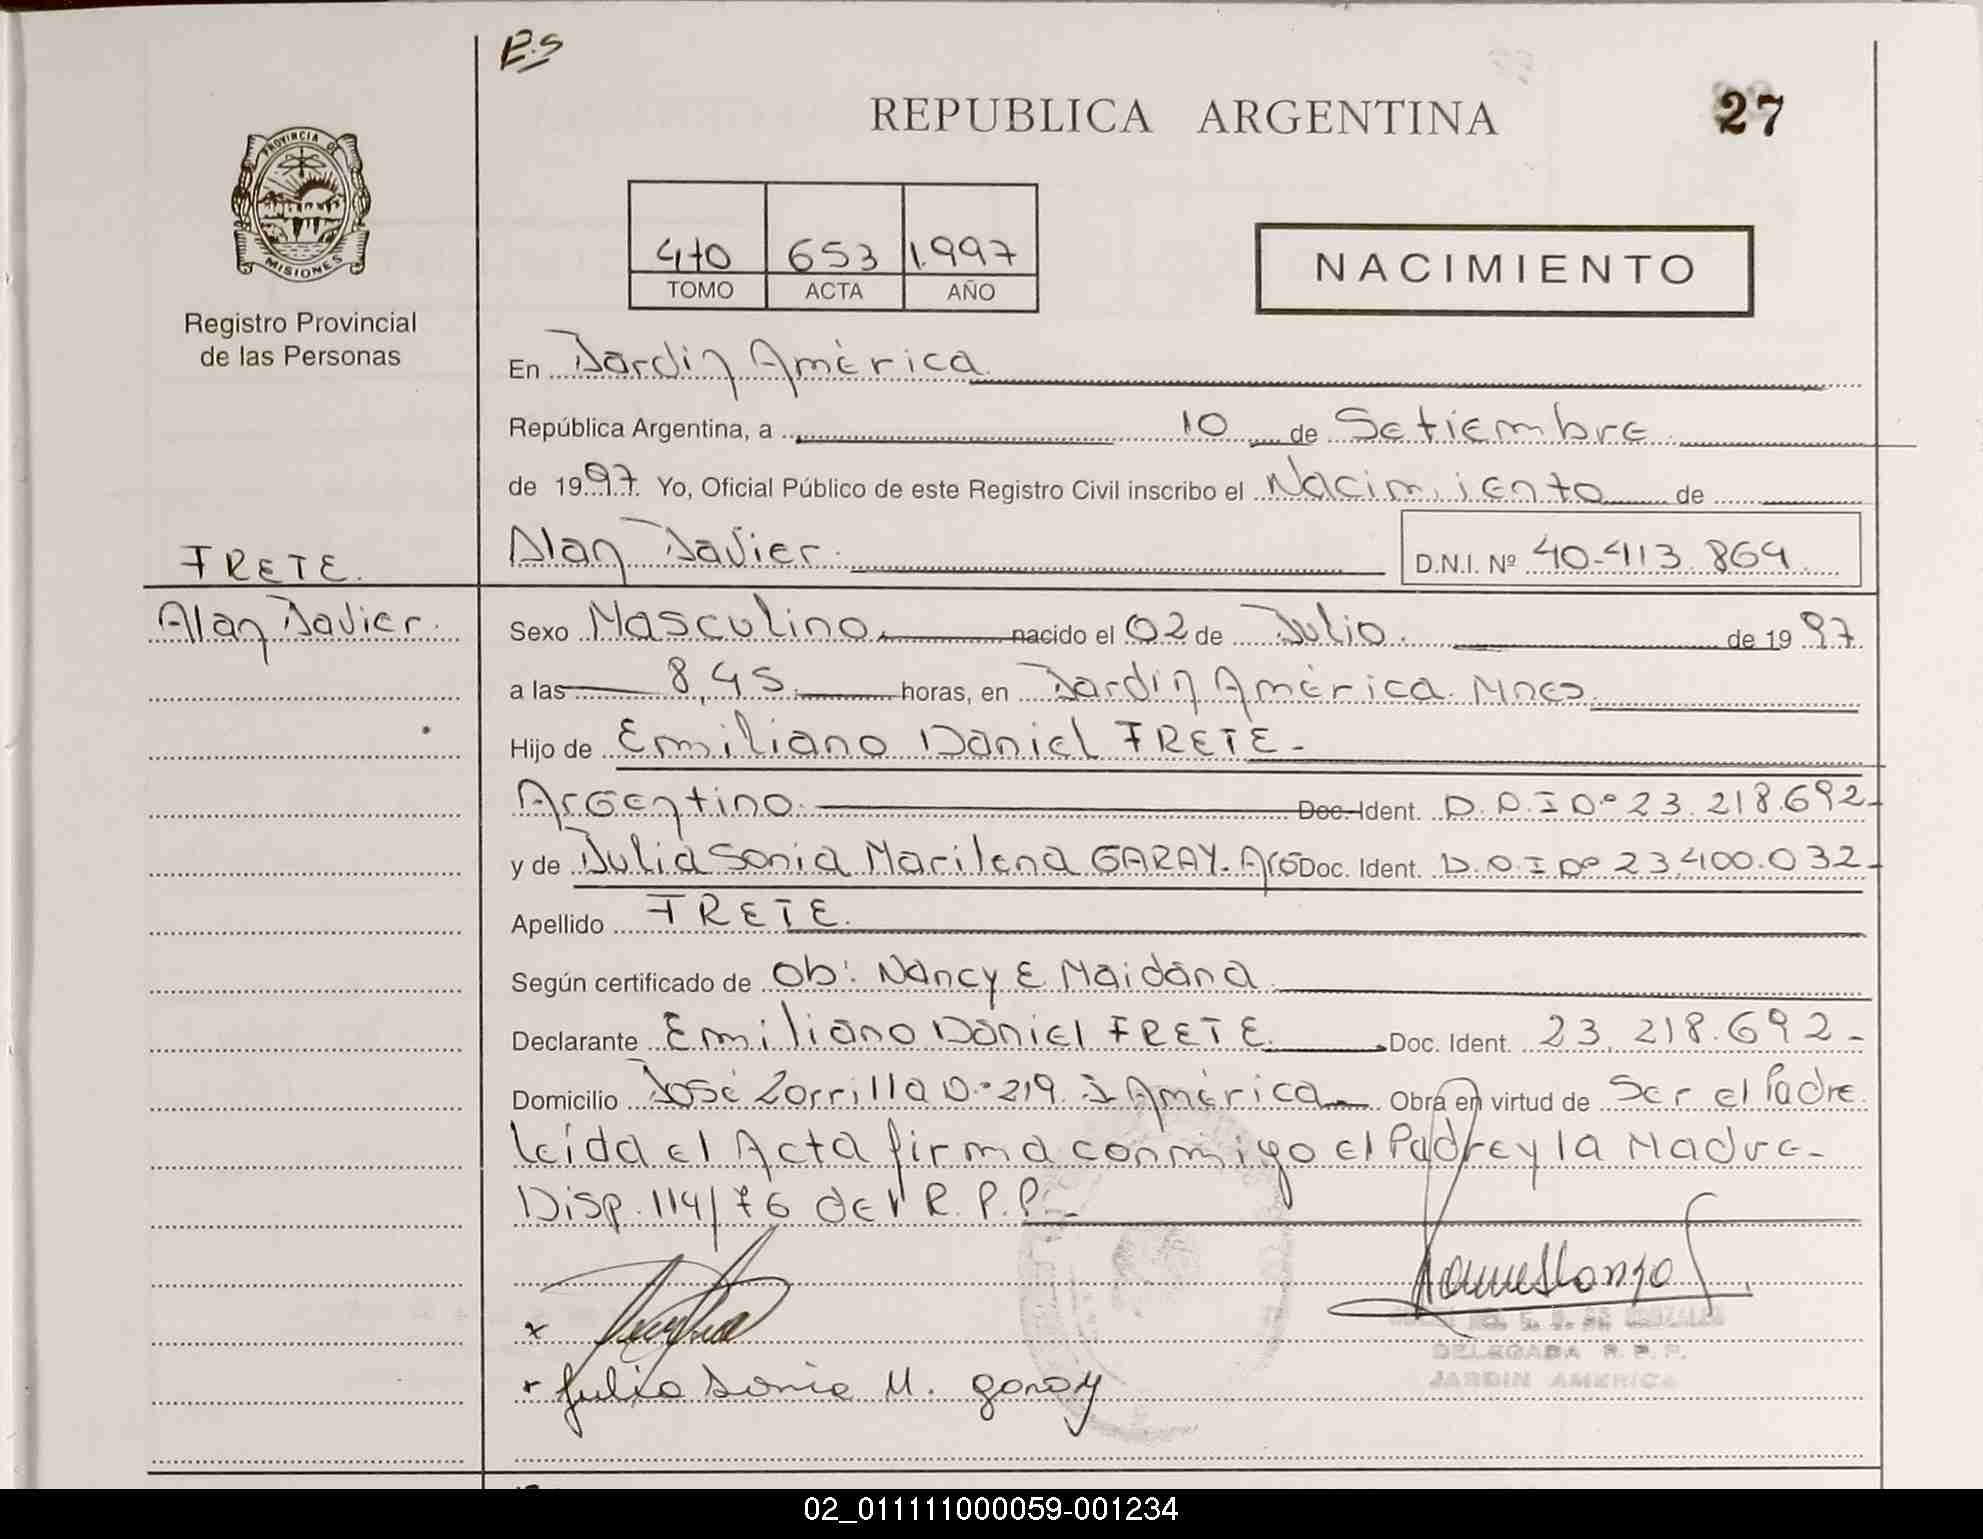 P.S
REPUBLICA ARGENTINA
27
PROVINCIA DE
MISIONES
Registro Provincial
de las Personas
410 653 1.997
TOMO ACTA AÑO
NACIMIENTO
En Jardín América.
República Argentina, a 10 de Setiembre
de 1997. Yo, Oficial Público de este Registro Civil inscribo el Nacimiento de
FRETE.
Alan Javier. D.N.I. Nº 40.413.864.
Alan Javier.
Sexo Masculino. nacido el 02 de Julio. de 1997
a las 8,45. horas, en Jardín América. Mnes.
Hijo de Emiliano Daniel FRETE-
Argentino. Doc. Ident. D.N.I Nº 23.218.692-
y de Julia Sonia Marilena GARAY. Arg Doc. Ident. D.N.I Nº 23.400.032-
Apellido FRETE.
Según certificado de Ob: Nancy E Maidana.
Declarante Emiliano Daniel FRETE. Doc. Ident. 23.218.692-
Domicilio José Zorrilla Nº 219. J América. Obra en virtud de Ser el Padre
leída el Acta firma conmigo el Padre y la Madre-
Disp. 114/76 del R.P.P.-
x
x Julia Sonia M. garay
DELEGADA R. P. P.
JARDIN AMERICA
02_011111000059-001234